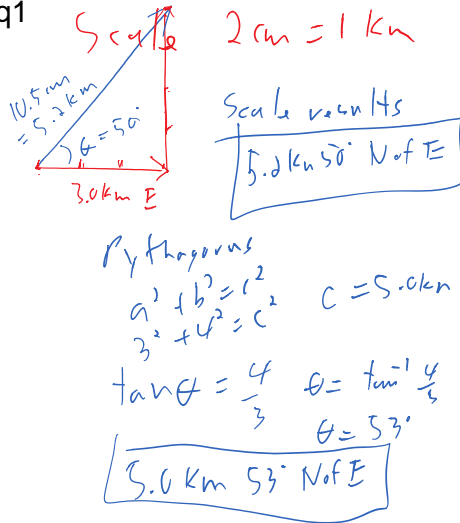 q1
Scale 2 cm = 1 Km
10.5 cm
= 5.2 km
θ = 50°
3.0 Km E
Scale results
5.2 Km 50° N of E
Pythagorus
a² + b² = c²
3² + 4² = c²
c = 5.0km
tan θ = 4/3
θ = tan⁻¹ 4/3
θ = 53°
5.0 Km 53° N of E